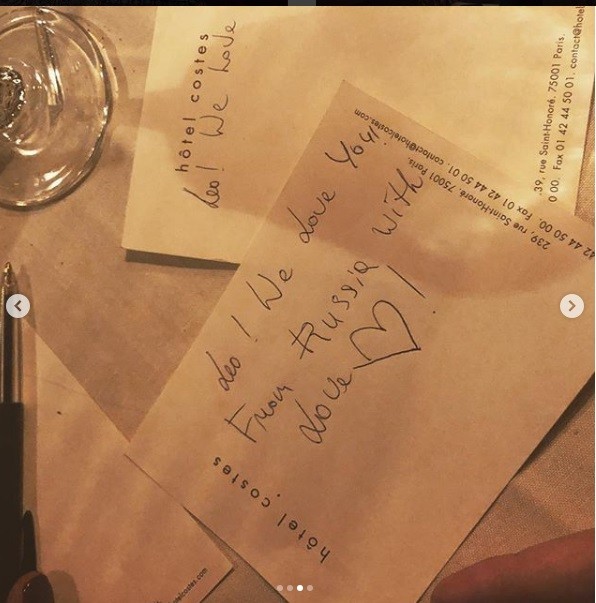 hôtel costes
Leo! We Love
39, rue Saint-Honoré, 75001 Paris.
0 00. Fax 01 42 44 50 01. contact@hotel
Leo! We Love You!
From Russia with
Love ♡!
hôtel costes
239, rue Saint-Honoré, 75001 Paris.
42 44 50 00. Fax 01 42 44 50 01. contact@hotelcostes.com
telcostes.com